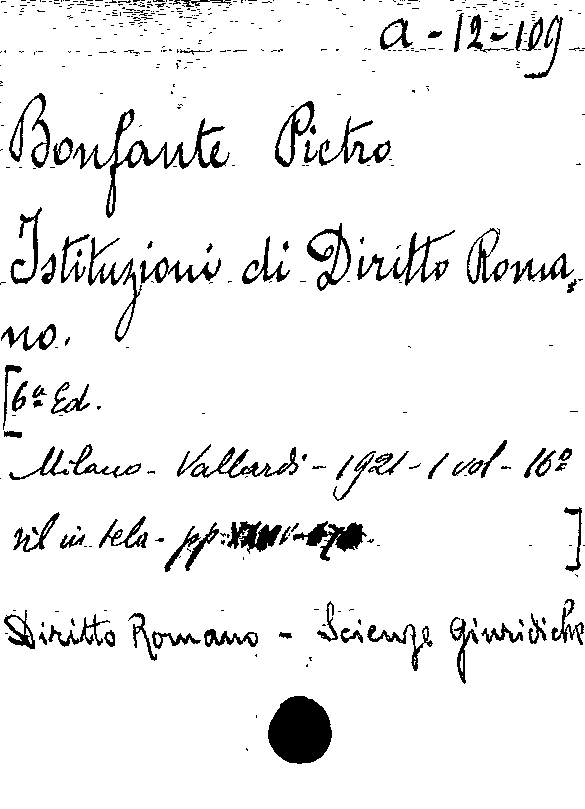 a-12-109
Bonfante Pietro
Istituzioni di Diritto Roma,
no.
[6ª Ed.
Milano - Vallardi - 1921 - 1 vol - 16º
ril in tela - pp. ]
Diritto Romano - Scienze Giuridiche